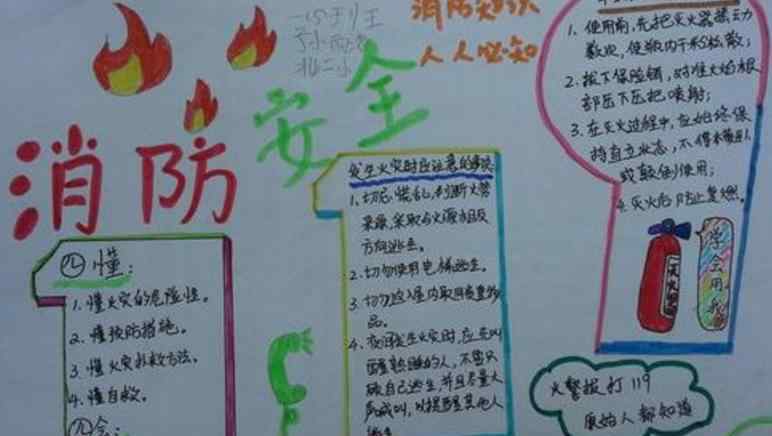 消防知识
人人必知
消防
安全
四懂：
1.懂火灾的危险性。
2.懂预防措施。
3.懂火灾扑救方法。
4.懂自救。
四会：
发生火灾时应注意的事项
1.切忌慌乱，判断火势
来源，采取与火源相反
方向逃生。
2.切勿使用电梯逃生。
3.切勿返入屋内取回贵重物
品。
4.夜间发生火灾时，应先叫
醒熟睡的人，不要只
顾自己逃生，并且尽量大
声喊叫，以提醒其他人
逃生
1.使用前，先把灭火器摇动
数次，使瓶内干粉松散；
2.拔下保险销，对准火焰根
部压下压把喷射；
3.在灭火过程中，应始终保
持直立状态，不得横卧
或颠倒使用；
4.灭火后防止复燃。
灭火器
学会用我
火警拨打119
原始人都知道